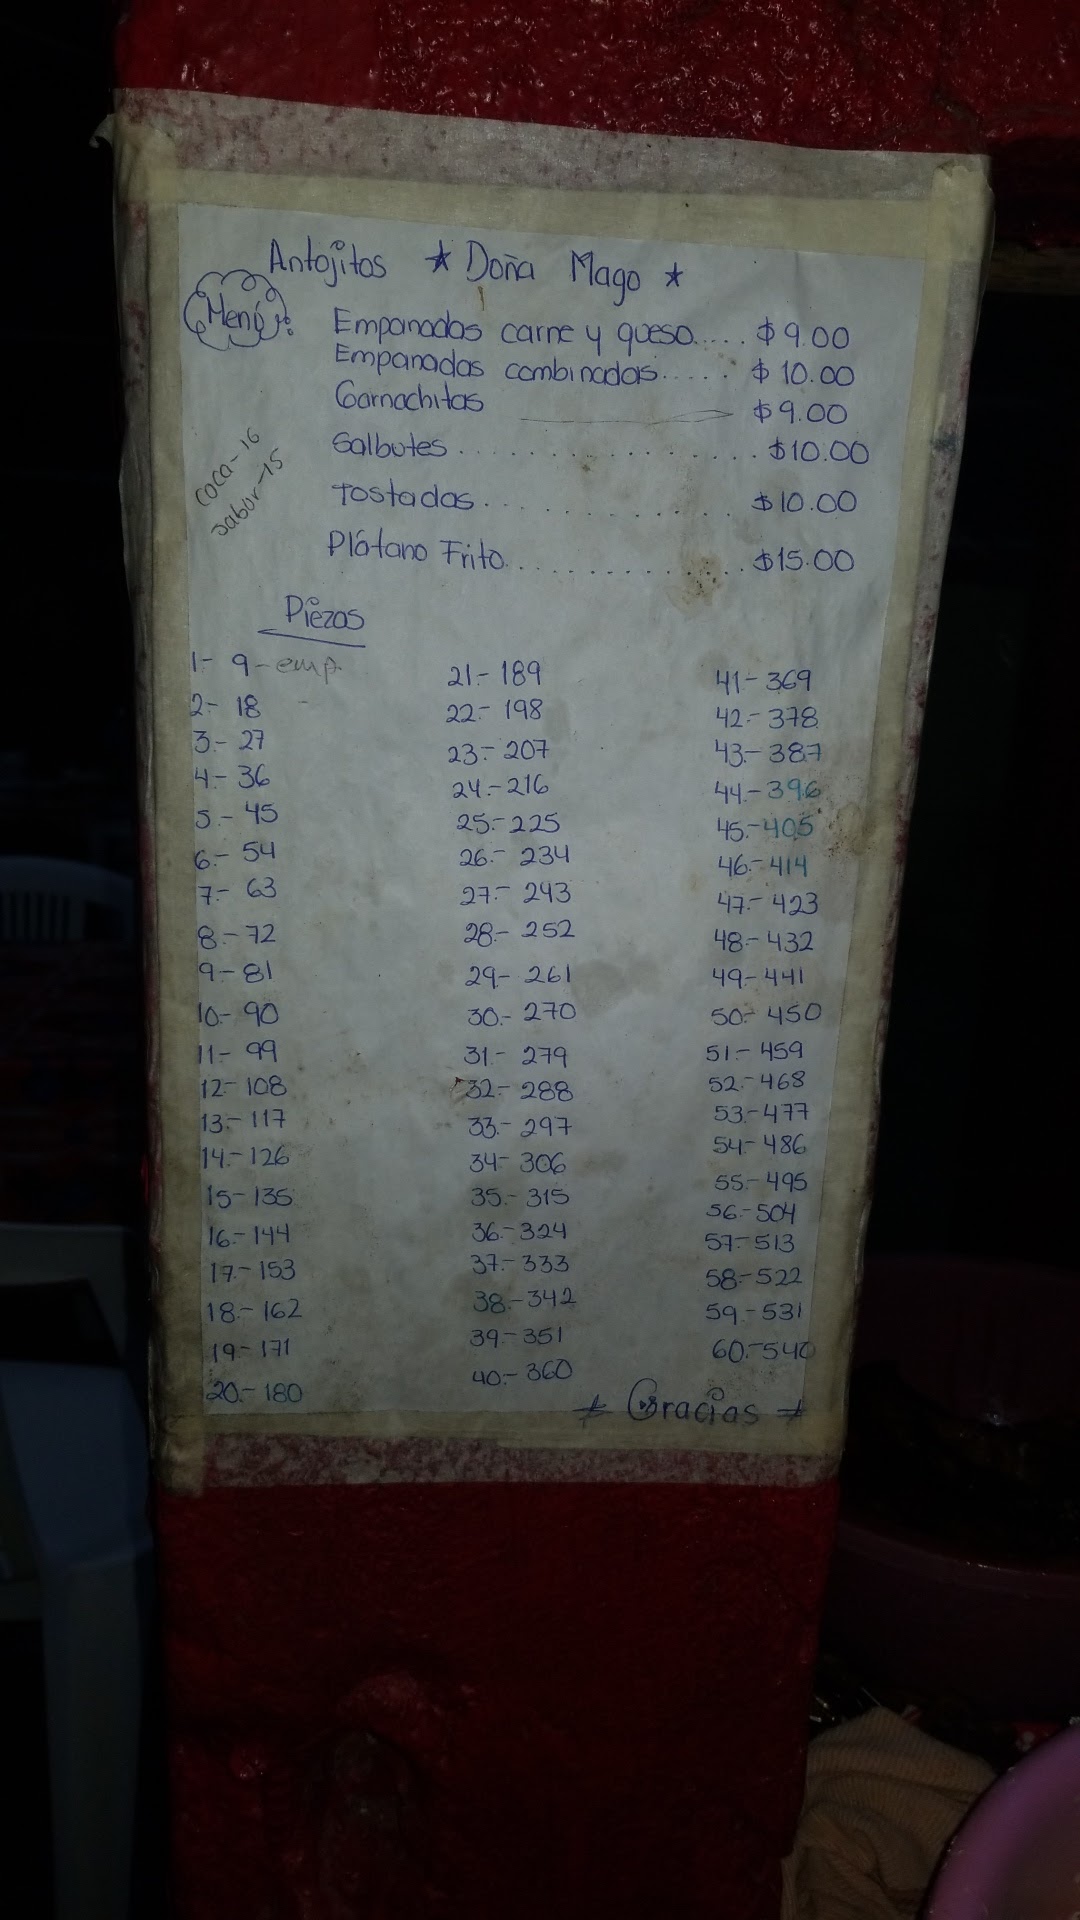 Antojitos ★ Doña Mago ★
Menú:
Empanadas carne y queso..... $9.00
Empanadas combinadas..... $10.00
Garnachitas $9.00
Salbutes................ $10.00
Tostadas............. $10.00
Plátano Frito............ $15.00
coca-16
sabor-15
Piezas
1- 9-emp.
2- 18
3- 27
4- 36
5.- 45
6.- 54
7.- 63
8.- 72
9- 81
10- 90
11- 99
12- 108
13.- 117
14.- 126
15- 135
16.- 144
17.- 153
18.- 162
19.- 171
20.- 180
21.- 189
22.- 198
23.- 207
24.- 216
25.- 225
26.- 234
27.- 243
28.- 252
29- 261
30.- 270
31.- 279
32.- 288
33.- 297
34- 306
35.- 315
36.- 324
37.- 333
38.- 342
39.- 351
40.- 360
41.- 369
42.- 378
43.- 387
44.- 396
45.- 405
46.- 414
47.- 423
48.- 432
49.- 441
50.- 450
51.- 459
52.- 468
53.- 477
54.- 486
55.- 495
56.- 504
57.- 513
58.- 522
59.- 531
60.- 540
★ Gracias ★